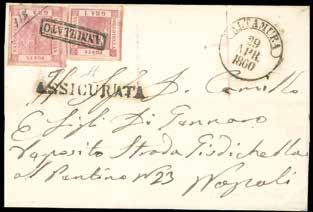 ANNULLATO
ALTAMURA
29
APR.
1860
ASSICURATA
D. Camillo
E figli Di Gennaro
Deposito Strada
al Pontino N 23 Napoli